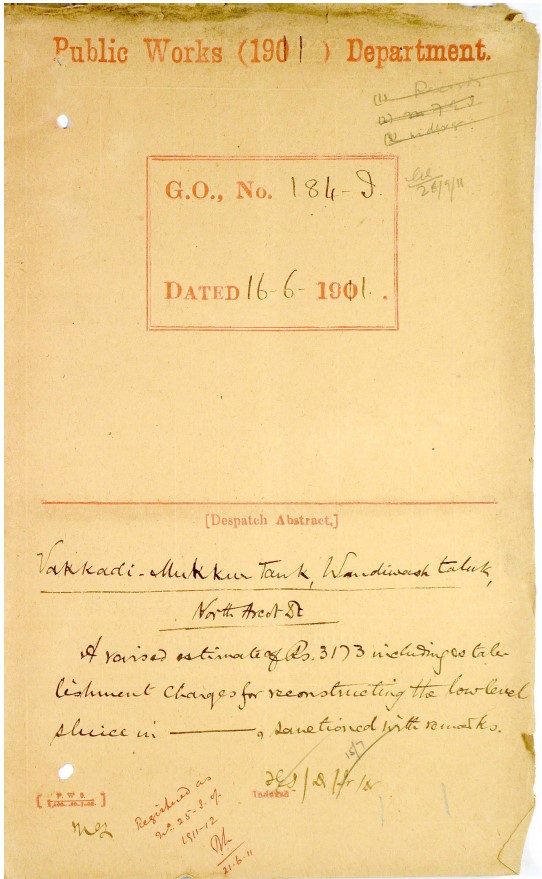 Public Works (1901) Department.
(1) Record
(2)
(3)
28/9/11
G.O., No. 184-I.
DATED 16-6-1901.
[Despatch Abstract.]
Vakkadi-Mukkur Tank, Wandiwash taluk,
North Arcot Dt
A revised estimate of Rs. 3173 including estab-
lishment charges for reconstructing the low level
sluice in ———, sanctioned with remarks.
15/7
Indexed
Registered as
No. 25-I. of
1911-12
21-6-11